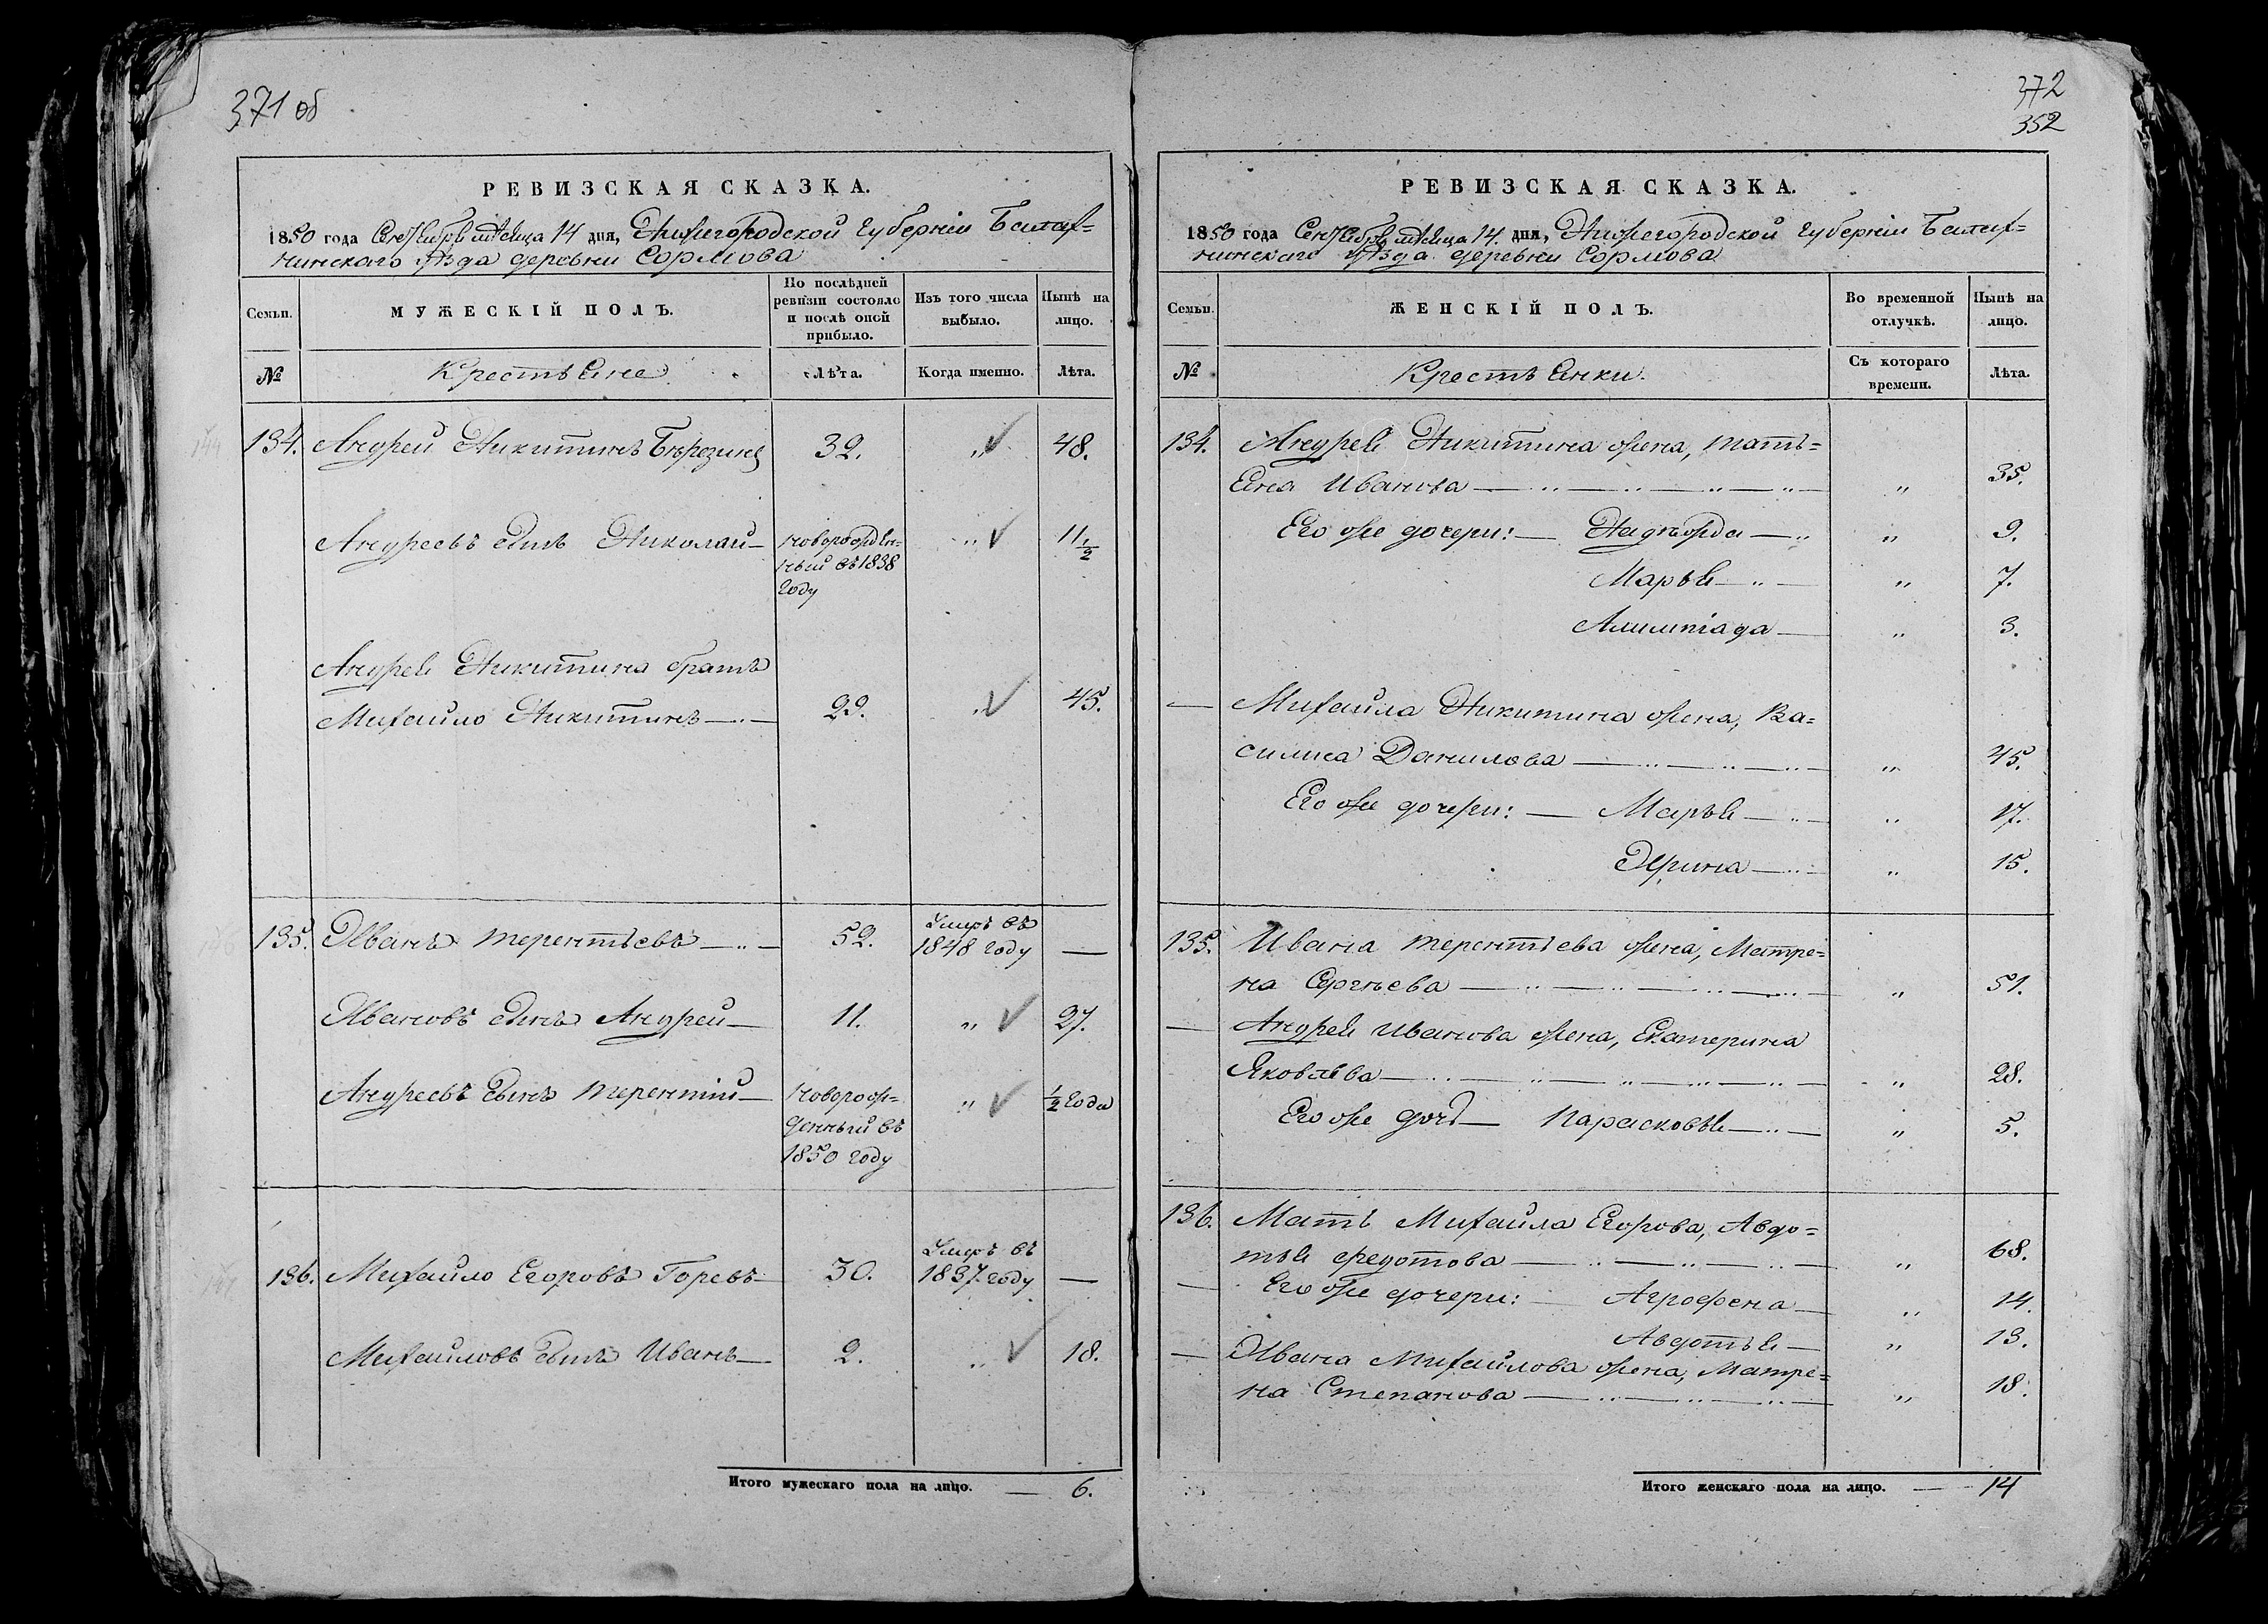 371 об
РЕВИЗСКАЯ СКАЗКА.
1850 года Сентября мѣсяца 14 дня, Нижегородской губерніи Балах=
нинскаго уѣзда деревни Сормова
Семьи.
МУЖЕСКІЙ ПОЛЪ.
По послѣдней ревизіи состояло и послѣ оной прибыло.
Изъ того числа выбыло.
Нынѣ на лицо.
№
Крестьяне
Лѣта.
Когда именно.
Лѣта.
134. Андрей Никитинъ Бѣрезинъ 32. „ 48.
Андреевъ сынъ Николай — новорожден-
ный въ 1838
году „ 11 1/2
Андрея Никитина братъ
Михайло Никитинъ — 29. „ 45.
135. Иванъ Терентьевъ — 52. Умръ въ
1848 году —
Ивановъ сынъ Андрей — 11. „ 27.
Андреевъ сынъ Терентій — новорож=
денный въ
1850 году „ 1/2 года
136. Михайло Егоровъ Горевъ — 30. Умръ въ
1837. году —
Михайловъ сынъ Иванъ — 2. „ 18.
Итого мужескаго пола на лицо. — 6.
372
352
РЕВИЗСКАЯ СКАЗКА.
1850 года Сентября мѣсяца 14. дня, Нижегородской губерніи Балах=
нинскаго уѣзда деревни Сормова
Семьи.
ЖЕНСКІЙ ПОЛЪ.
Во временной отлучкѣ.
Нынѣ на лицо.
№
Крестьянки.
Съ котораго времени.
Лѣта.
134. Андрея Никитина жена, Тать=
яна Иванова — „ 35.
Его же дочери: — Надѣжда — „ 9.
Марья — „ 7.
Алимпіада — „ 3.
— Михайла Никитина жена, Ва=
силиса Данилова — „ 45.
Его же дочери: — Марья — „ 17.
Ирина — „ 15.
135. Ивана Терентьева жена, Матре=
на Сергѣева — „ 51.
— Андрея Иванова жена, Екатерина
Яковлѣва — „ 28.
Его же дочь — Парасковья — „ 5.
136. Мать Михайла Егорова, Авдо=
тья Федотова — „ 68.
— Его же дочери: — Агрофена — „ 14.
Авдотья — „ 13.
— Ивана Михайлова жена, Матре=
на Степанова — „ 18.
Итого женскаго пола на лицо. — 14